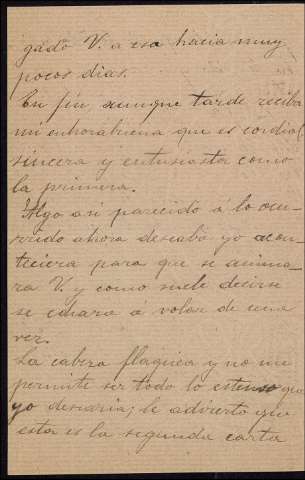 gado V. a esa hacia muy
pocos dias.
En fin, aunque tarde reciba
mi enhorabuena que es cordial,
sincera y entusiasta como
la primera.
Algo asi parecido á lo ocu-
rrido ahora deseaba yo acon-
teciera para que se anima-
ra V. y como suele decirse
se echara á volar de una
vez.
La cabeza flaquea y no me
permite ser todo lo estenso que
yo desearia; le advierto que
esta es la segunda carta